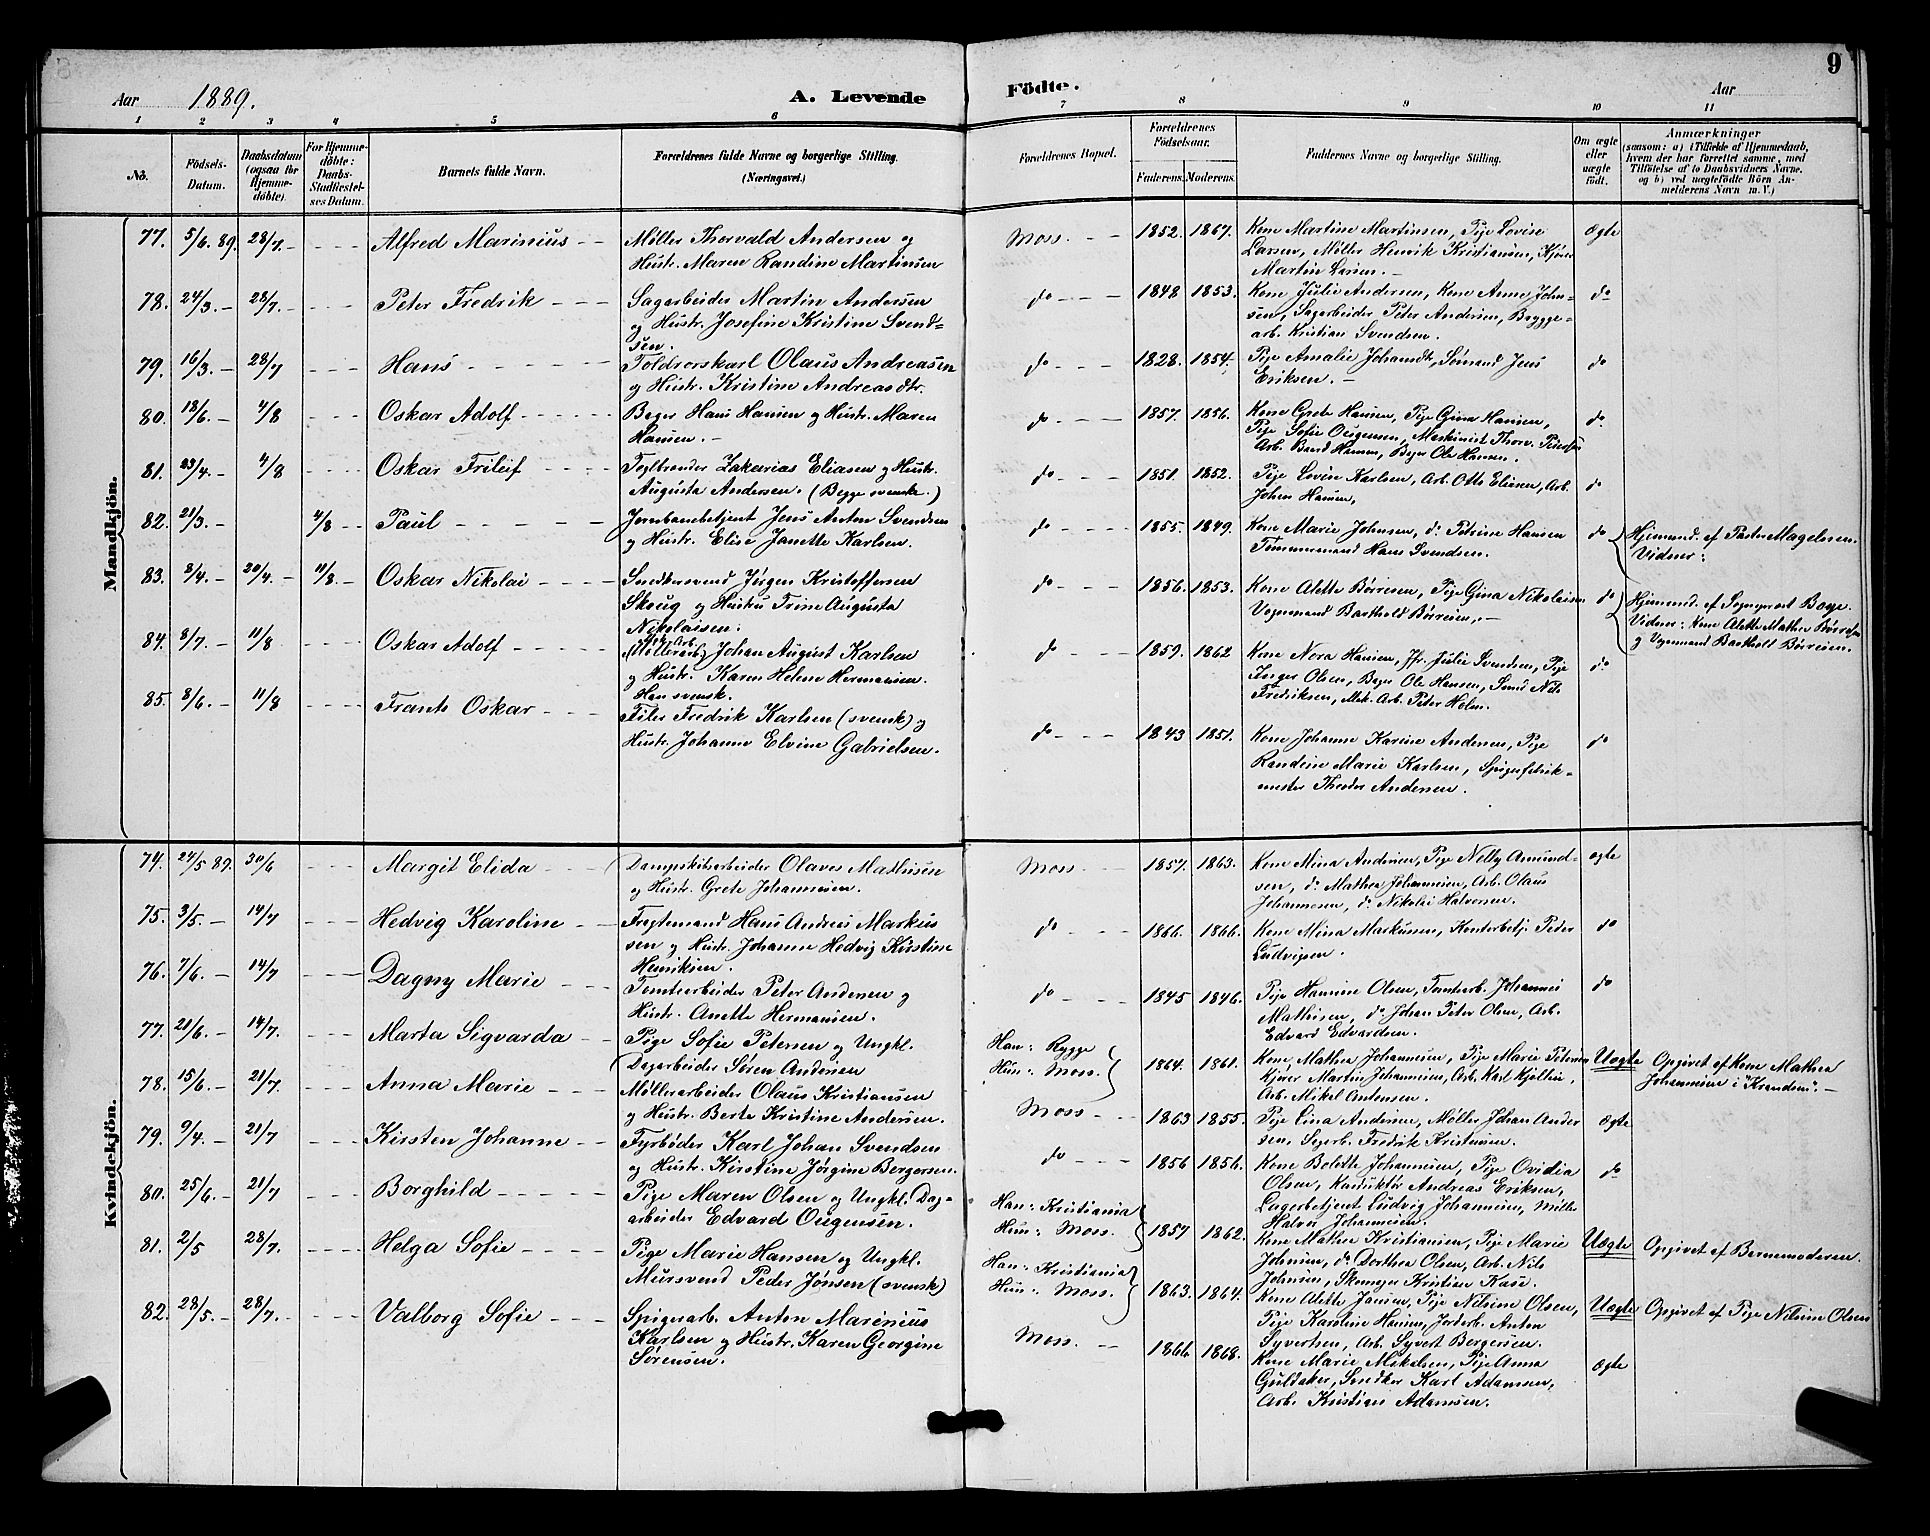 9
Aar 1889.
A. Levende
Födte.
Aar
1 2 3 4 5 6 7 8 9 10 11
No.
Födsels-
Datum.
Daabsdatum
(ogsaa for
Hjemme-
døbte).
For Hjemme-
døbte:
Daabs-
Stadfæstel-
ses Datum.
Barnets fulde Navn.
Forældrenes fulde Navne og borgerlige Stilling.
(Næringsvei.)
Forældrenes Bopæl.
Forældrenes
Fødselsaar.
Faderens. Moderens.
Faddernes Navne og borgerlige Stilling.
Om ægte
eller
uægte
født.
Anmærkninger
(saasom: a) i Tilfælde af Hjemmedaab,
hvem der har forrettet samme, med
Tilføielse af to Daabsvidners Navne,
og b) ved uægtefødte Börn An-
melderens Navn m. V.)
Mandkjön.
77. 5/6. 89. 28/7. - Alfred Marinius
Møller Thorvald Andersen og
Hustr. Maren Randine Martinsen
Moss. 1852. 1867.
Kone Martine Martinsen, Pige Lovise
Larsen, Møller Henrik Kristiansen, Kjører
Martin Larsen. -
Ægte
78. 24/3. - 28/7. Peter Fredrik
Sagarbeider Martin Andersen
og Hustr. Josefine Kristine Svend-
sen.
do 1848 1853.
Kone Julie Andersen, Kone Anne John-
sen, Sagarbeider Peter Andersen, Brygge-
arb. Kristian Svendsen.
do
79. 16/3. - 28/7 Hans
Toldrorskarl Olaus Andreasen
og Hustr. Kristine Andreasdtr.
do 1828. 1854.
Pige Amalie Johansdt, Sømand Jens
Eriksen. -
do
80. 18/6. - 4/8 Oskar Adolf
Bager Hans Hansen og Hustr. Maren
Hansen. -
do 1857. 1856.
Kone Grete Hansen, Pige Gina Hansen,
Pige Sofie Ougensen, Maskinist Thorv. Petersen
Arb. Bernt Hansen, Bager Ole Hansen.
do.
81. 23/4. - 4/8 Oskar Frileif
Teglbrænder Zakarias Eliasen og Hustr.
Augusta Andersen. (Begge svenske.)
do 1851. 1852.
Pige Lovise Karlsen, Arb. Otto Eliasen, Arb.
Johan Hansen,
do
82. 21/3. - 4/8 - Paul
Jernbanebetjent Jens Anton Svendsen
og Hustr. Elise Janette Karlsen.
do 1855. 1849.
Kone Marie Johnsen, do Petrine Hansen
Tømmermand Hans Svendsen.
do
Hjemmed. af Pastor Magelssen.
Vidner:
83. 8/4. - 20/4. - 11/8. - Oskar Nikolai
Snedkersvend Jørgen Kristoffersen
Skoug og Hustru Trine Augusta
Nikolaisen.
do 1856. 1853.
Kone Alette Børresen, Pige Gina Nikolaisen
Vognmand Barthold Børresen. -
do
Hjemmed. af Sogneprest Boye.
Vidner: Kone Alette Mathea Børresen
og Vognmand Barthold Børresen.
84. 8/7. - 11/8 Oskar Adolf
(Møllerarb.) Johan August Karlsen
og Hustr. Karen Helene Hermansen.
Han svensk.
do 1859. 1862
Kone Nora Hansen, Jfr. Julie Svendsen, Pige
Inger Olsen, Bager Ole Hansen, Smed Nils
Fredriksen, Mek. Arb. Peter Holm.
do
85. 8/6. - 11/8 Frants Oskar
Filer Fredrik Karlsen (svensk) og
Hustr. Johanne Elvine Gabrielsen.
do 1843 1851.
Kone Johanne Karine Andersen, Pige
Randine Marie Karlsen, Spigerfabrik-
mester Theodor Andersen.
do
Kvindekjön.
74. 24/5 89. 30/6 Margit Elida
Dampskibsarbeider Olaves Mathisen
og Hustr. Grete Johannesen.
Moss 1857. 1863.
Kone Mina Andersen, Pige Nelly Amund-
sen, do Mathea Johannesen, Arb. Olaus
Johannesen, do Nikolai Halvorsen.
ægte
75. 3/5. - 14/7 Hedvig Karoline
Fragtemand Hans Andreas Markus
sen og Hustr. Johanne Hedvig Kirstine
Henriksen.
do 1866. 1866.
Kone Mina Markussen, Kontorbetj. Peter
Ludvigsen.
do
76. 7/6. - 14/7 Dagny Marie
Tomtearbeider Peter Andersen og
Hustr. Anette Hermansen.
do 1845 1846.
Pige Hannine Olsen, Tomtearb. Johannes
Mathisen, do Johan Peter Olsen, Arb.
Edvard Edvardsen.
do
77. 21/6. - 14/7. Marta Sigvarda
Pige Sofie Petersen og Ungkl.
Dagarbeider Søren Andersen
Han: Rygge
Hun: Moss.
1864. 1861.
Kone Mathea Johannesen, Pige Marie Petersen
Kjører Martin Johannesen, Arb. Karl Kjollin,
Arb. Mikal Antonsen.
Uægte
Opgivet af Kone Mathea
Johannesen i "Kranden". -
78. 15/6. - 21/7. Anna Marie
Møllerarbeider Olaus Kristiansen
og Hustr. Berte Kristine Andersen.
Moss 1863 1855.
Pige Lina Andersen, Møller Johan Ander
sen, Sagarb. Fredrik Kristiansen.
ægte
79. 9/4. - 21/7 Kirsten Johanne
Fyrbøder Karl Johan Svendsen
og Hustr. Kirstine Jørgine Bergersen.
do 1856 1856.
Kone Bolette Johannesen, Pige Ovidia
Olsen, Konduktør Andreas Eriksen,
Lagerbetjent Ludvig Johannesen, Møller
Halvor Johannesen.
do
80. 25/6. - 21/7 Borghild
Pige Maren Olsen og Ungkl. Dag-
arbeider Edvard Ougensen.
Han: Kristiania
Hun: Moss.
1857 1862.
Kone Mathea Kristiansen, Pige Marie
Johnsen, do Dorthea Olsen, Arb. Nils
Johnsen, Skomager Kristian Kase.
Uægte
Opgivet af Barnemoderen.
81. 2/5 28/7. Helga Sofie
Pige Marie Hansen og Ungkl.
Mursvend Peder Jonsen (svensk)
Han: Kristiania
Hun: Moss.
1863. 1864.
Kone Alette Jansen, Pige Nilsine Olsen,
Pige Karoline Hansen, Jordarb. Anton
Syvertsen, Arb. Syvert Bergersen.
Uægte
Opgivet af Pige Nilsine Olsen
82. 28/5. - 28/7. Valborg Sofie
Spigerarb. Anton Marinius
Karlsen og Hustr. Karen Georgine
Sørensen.
Moss. 1866 1868.
Kone Marie Mikalsen, Pige Anna
Guldaker, Snedker Karl Adamsen,
Arb. Kristian Adamsen.
Ægte